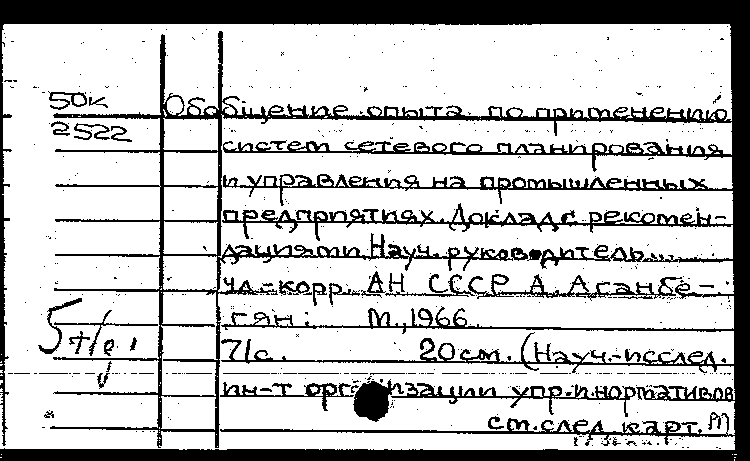 50к
2522
Обобщение опыта по применению
систем сетевого планирования
и управления на промышленных
предприятиях. Доклад с рекомен-
дациями. Науч. руководитель...
чл.-корр. АН СССР А. Аганбе-
гян. М., 1966.
71с. 20см. (Науч.-исслед.
ин-т организации упр. и нормативов
см. след. карт.